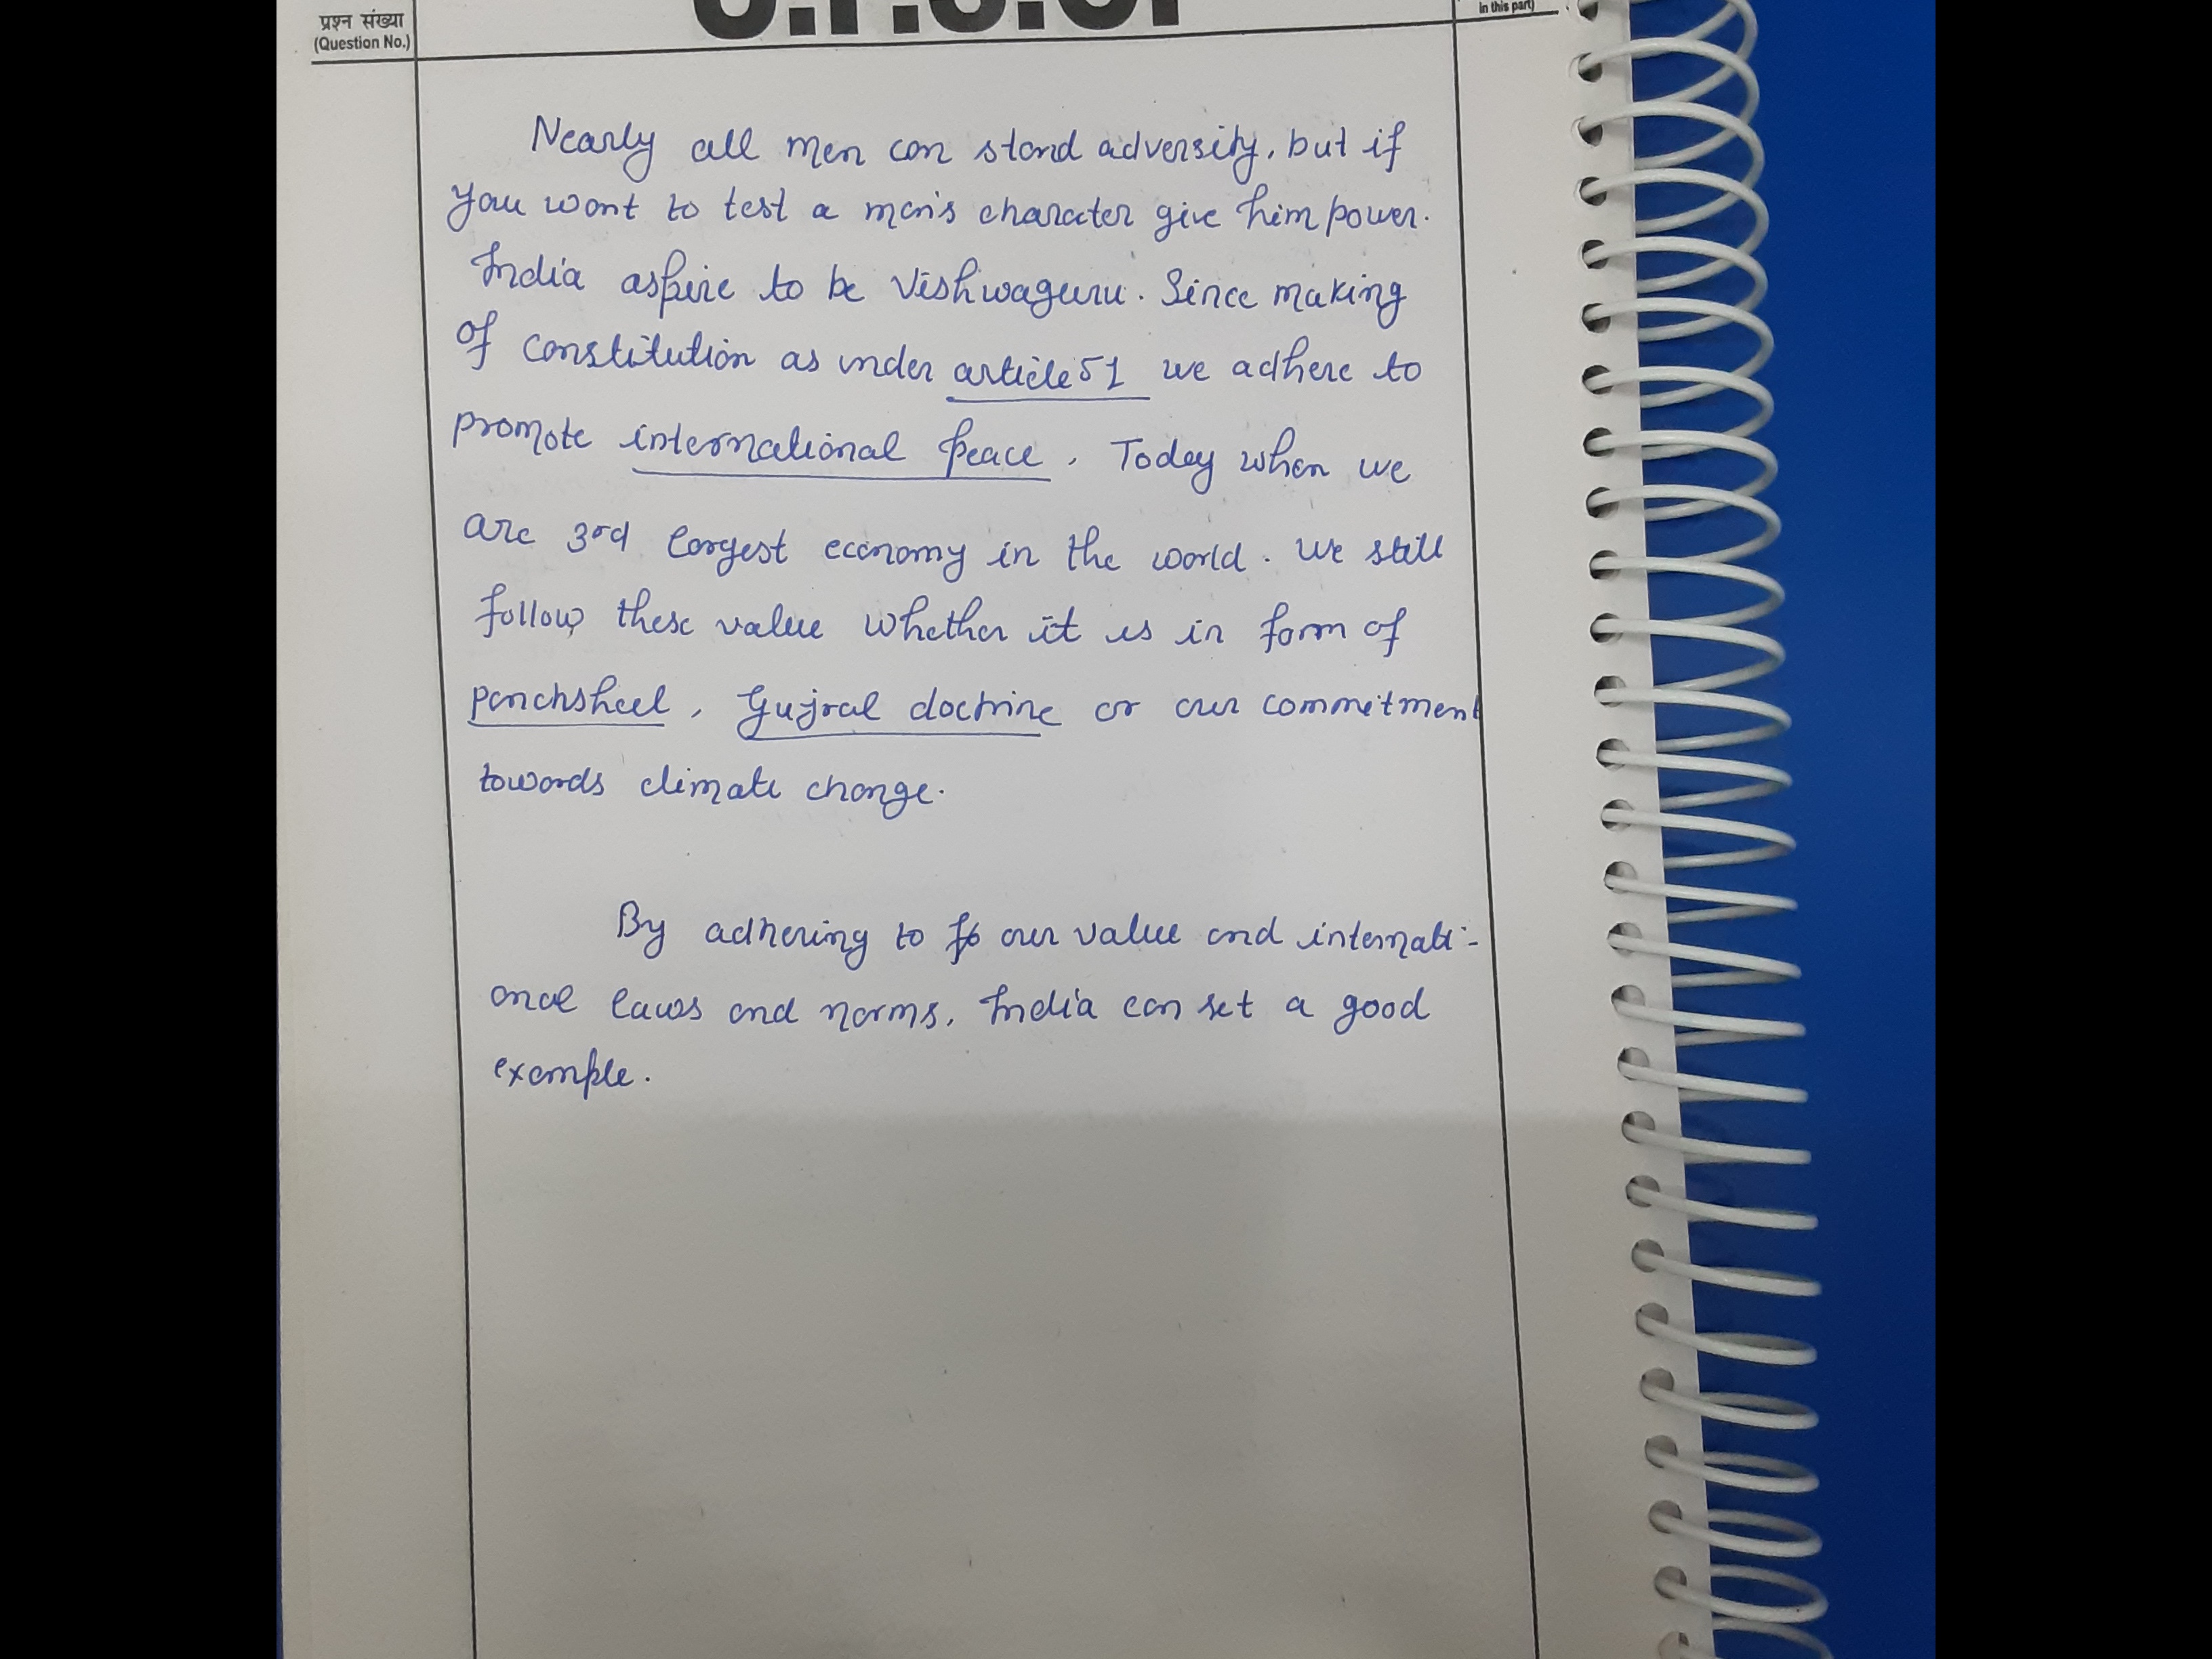 प्रश्न संख्या
(Question No.)
U.P.S.C.
in this part)
Nearly all men can stand adversity, but if
you want to test a man's character give him power.
India aspire to be Vishwaguru. Since making
of constitution as under article 51 we adhere to
promote international peace. Today when we
are 3rd largest economy in the world. we still
follow these value whether it is in form of
panchsheel, Gujral doctrine or our commitment
towards climate change.
By adhering to our value and internati-
onal laws and norms, India can set a good
example.